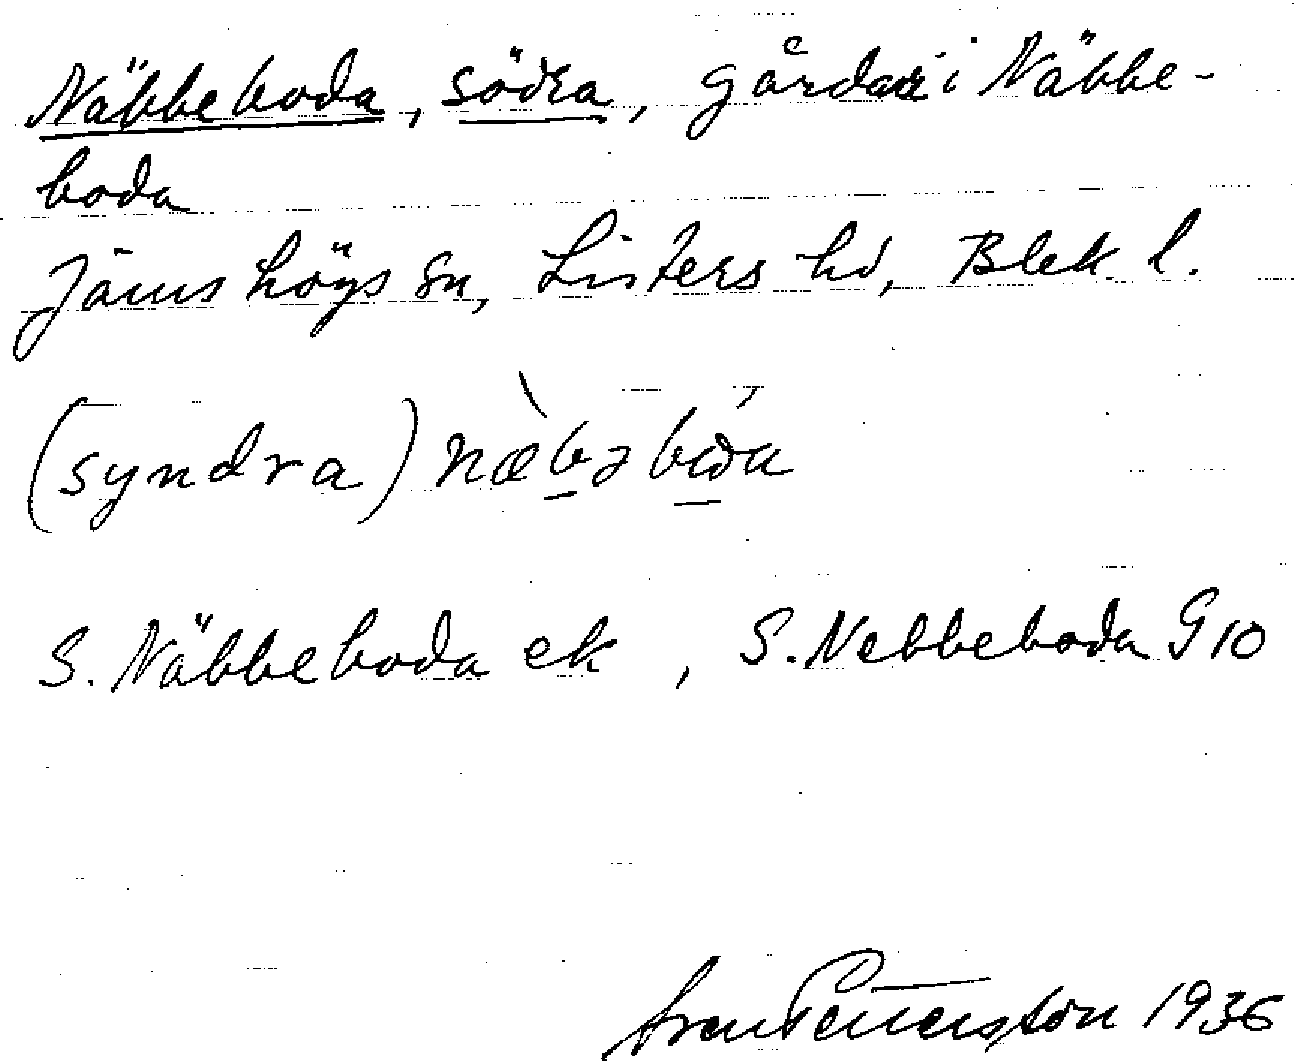 Näbbeboda, södra, gårdar i Näbbe-
boda
Jämshögs sn, Listers hd, Blek. l.
(syndra) næ̀bəbo̱da
S. Näbbeboda ek, S. Nebbeboda G10
Sven Pettersson 1936